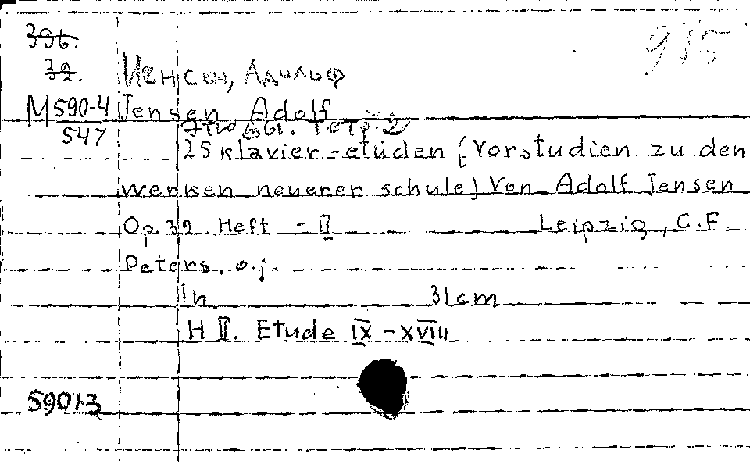 396.
935
32.
Иенсен, Адольф
M 590-4
547
Jensen Adolf
Этюды. Тетр. 2
25 Klavier-etüden (Vorstudien zu den
werken neuerer schule) Von Adolf Jensen
Op 32 Heft - II Leipzig, C. F.
Peters, o. j.
In 31 cm
H II. Etude IX - XVIII
5901-3